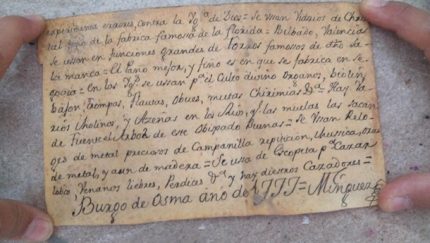 experimenta exzeres, contra la Yg.ª de Dios = Se usan Vidrios de Chris
tal fino de la fabrica famosa de la florida = Bilbado, Valencia
Se usan en funciones grandes de toros famosos de dha
la marca = El paño mejor, y fino es en que se fabrica en Se
govia = En las Yg.s se ussan p.ª el Culto divino organos, biolin,
bajon, trompas, flautas, obues, muetas Chirimias &.ª Hay
rios Molinos, y Azenas en los Rios, y las muelas las sacan
de fuente el Arbol de este Obispado Buenas = Se usan Relo
ges de metal preciosos de Campanilla repiticion, y musica,
de metal, y aun de madera = Se usa de Escopeta p.ª Cazar
lobos, Venanos liebres, Perdices &.ª y hay diestros Cazadores =
Burgo de Osma año de 1777 = Minguez